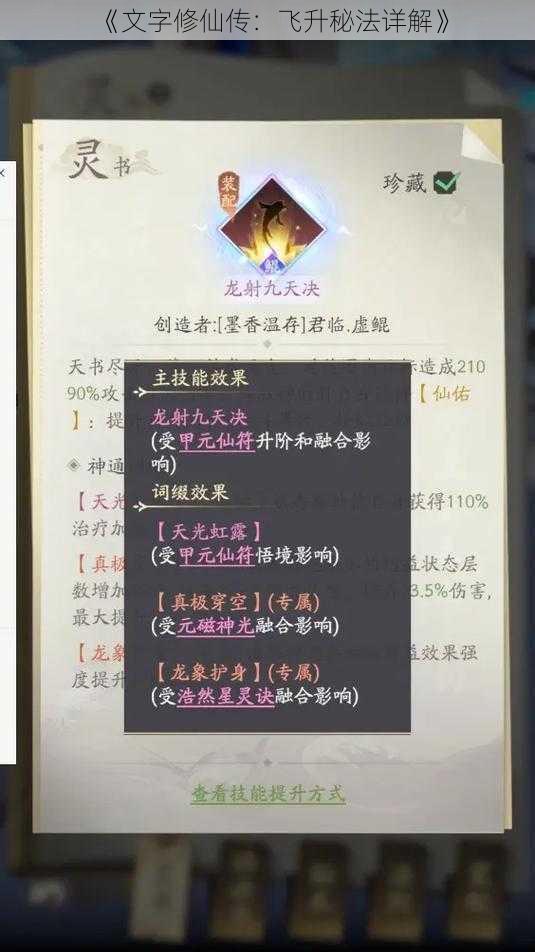 《文字修仙传：飞升秘法详解》
灵书
珍藏
装配
鲲
龙射九天决
创造者:[墨香温存]君临.虚鲲
天书尽
造成210
主技能效果
90%攻
【仙佑
】：提
龙射九天决
(受甲元仙符升阶和融合影
响)
神通
词缀效果
【天光
获得110%
治疗加
【天光虹露】
(受甲元仙符悟境影响)
【真极
益状态层
数增加
3.5%伤害,
最大提
【真极穿空】(专属)
(受元磁神光融合影响)
【龙象
益效果强
度提升
【龙象护身】(专属)
(受浩然星灵诀融合影响)
查看技能提升方式